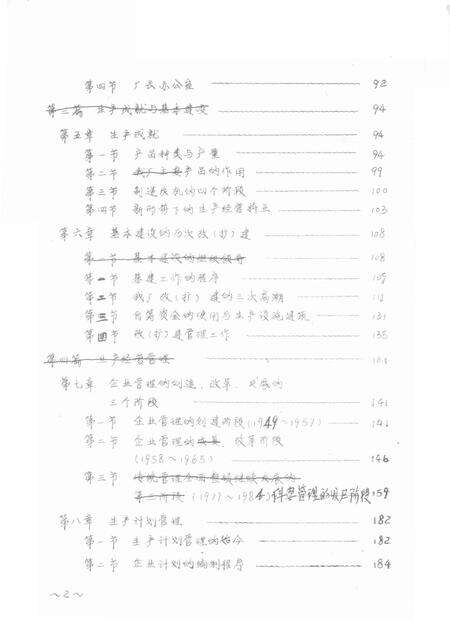 第四节 厂长办公室 92
第三篇 生产成就与基本建设 94
第五章 生产成就 94
第一节 产品种类与产量 94
第二节 我厂主要产品的作用 99
第三节 制造 的四个阶段 100
第四节 新形势下的生产经营特点 103
第六章 基本建设的历次改(扩)建 108
第一节 基本建设的组织领导 108
第一节 基建工作的程序 109
第二节 我厂改(扩)建的三次高潮 112
第三节 自筹资金的使用与生产设施建设 131
第四节 改(扩)建管理工作 135
第四篇 生产经营管理
第七章 企业管理的创建、改革、发展的
三个阶段 141
第一节 企业管理的创建阶段(1949～1957) 141
第二节 企业管理的 改革阶段
(1958～1965) 146
第三节
第三阶段 (1977～1984)科学管理的发展阶段 159
第八章 生产计划管理 182
第一节 生产计划管理的 182
第二节 企业计划的编制程序 184
～2～